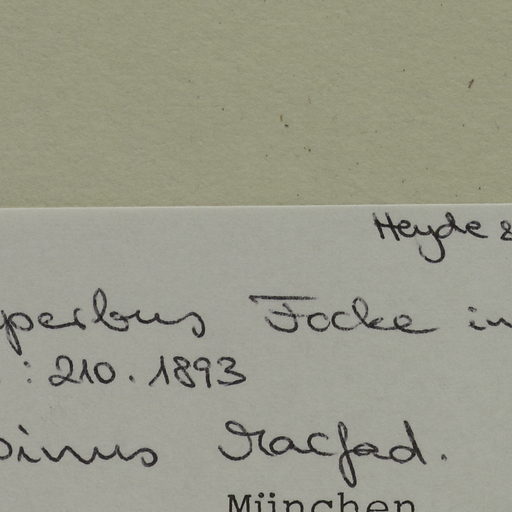 Heyde &
perbus Focke in
: 210. 1893
sinus Macfad.
München